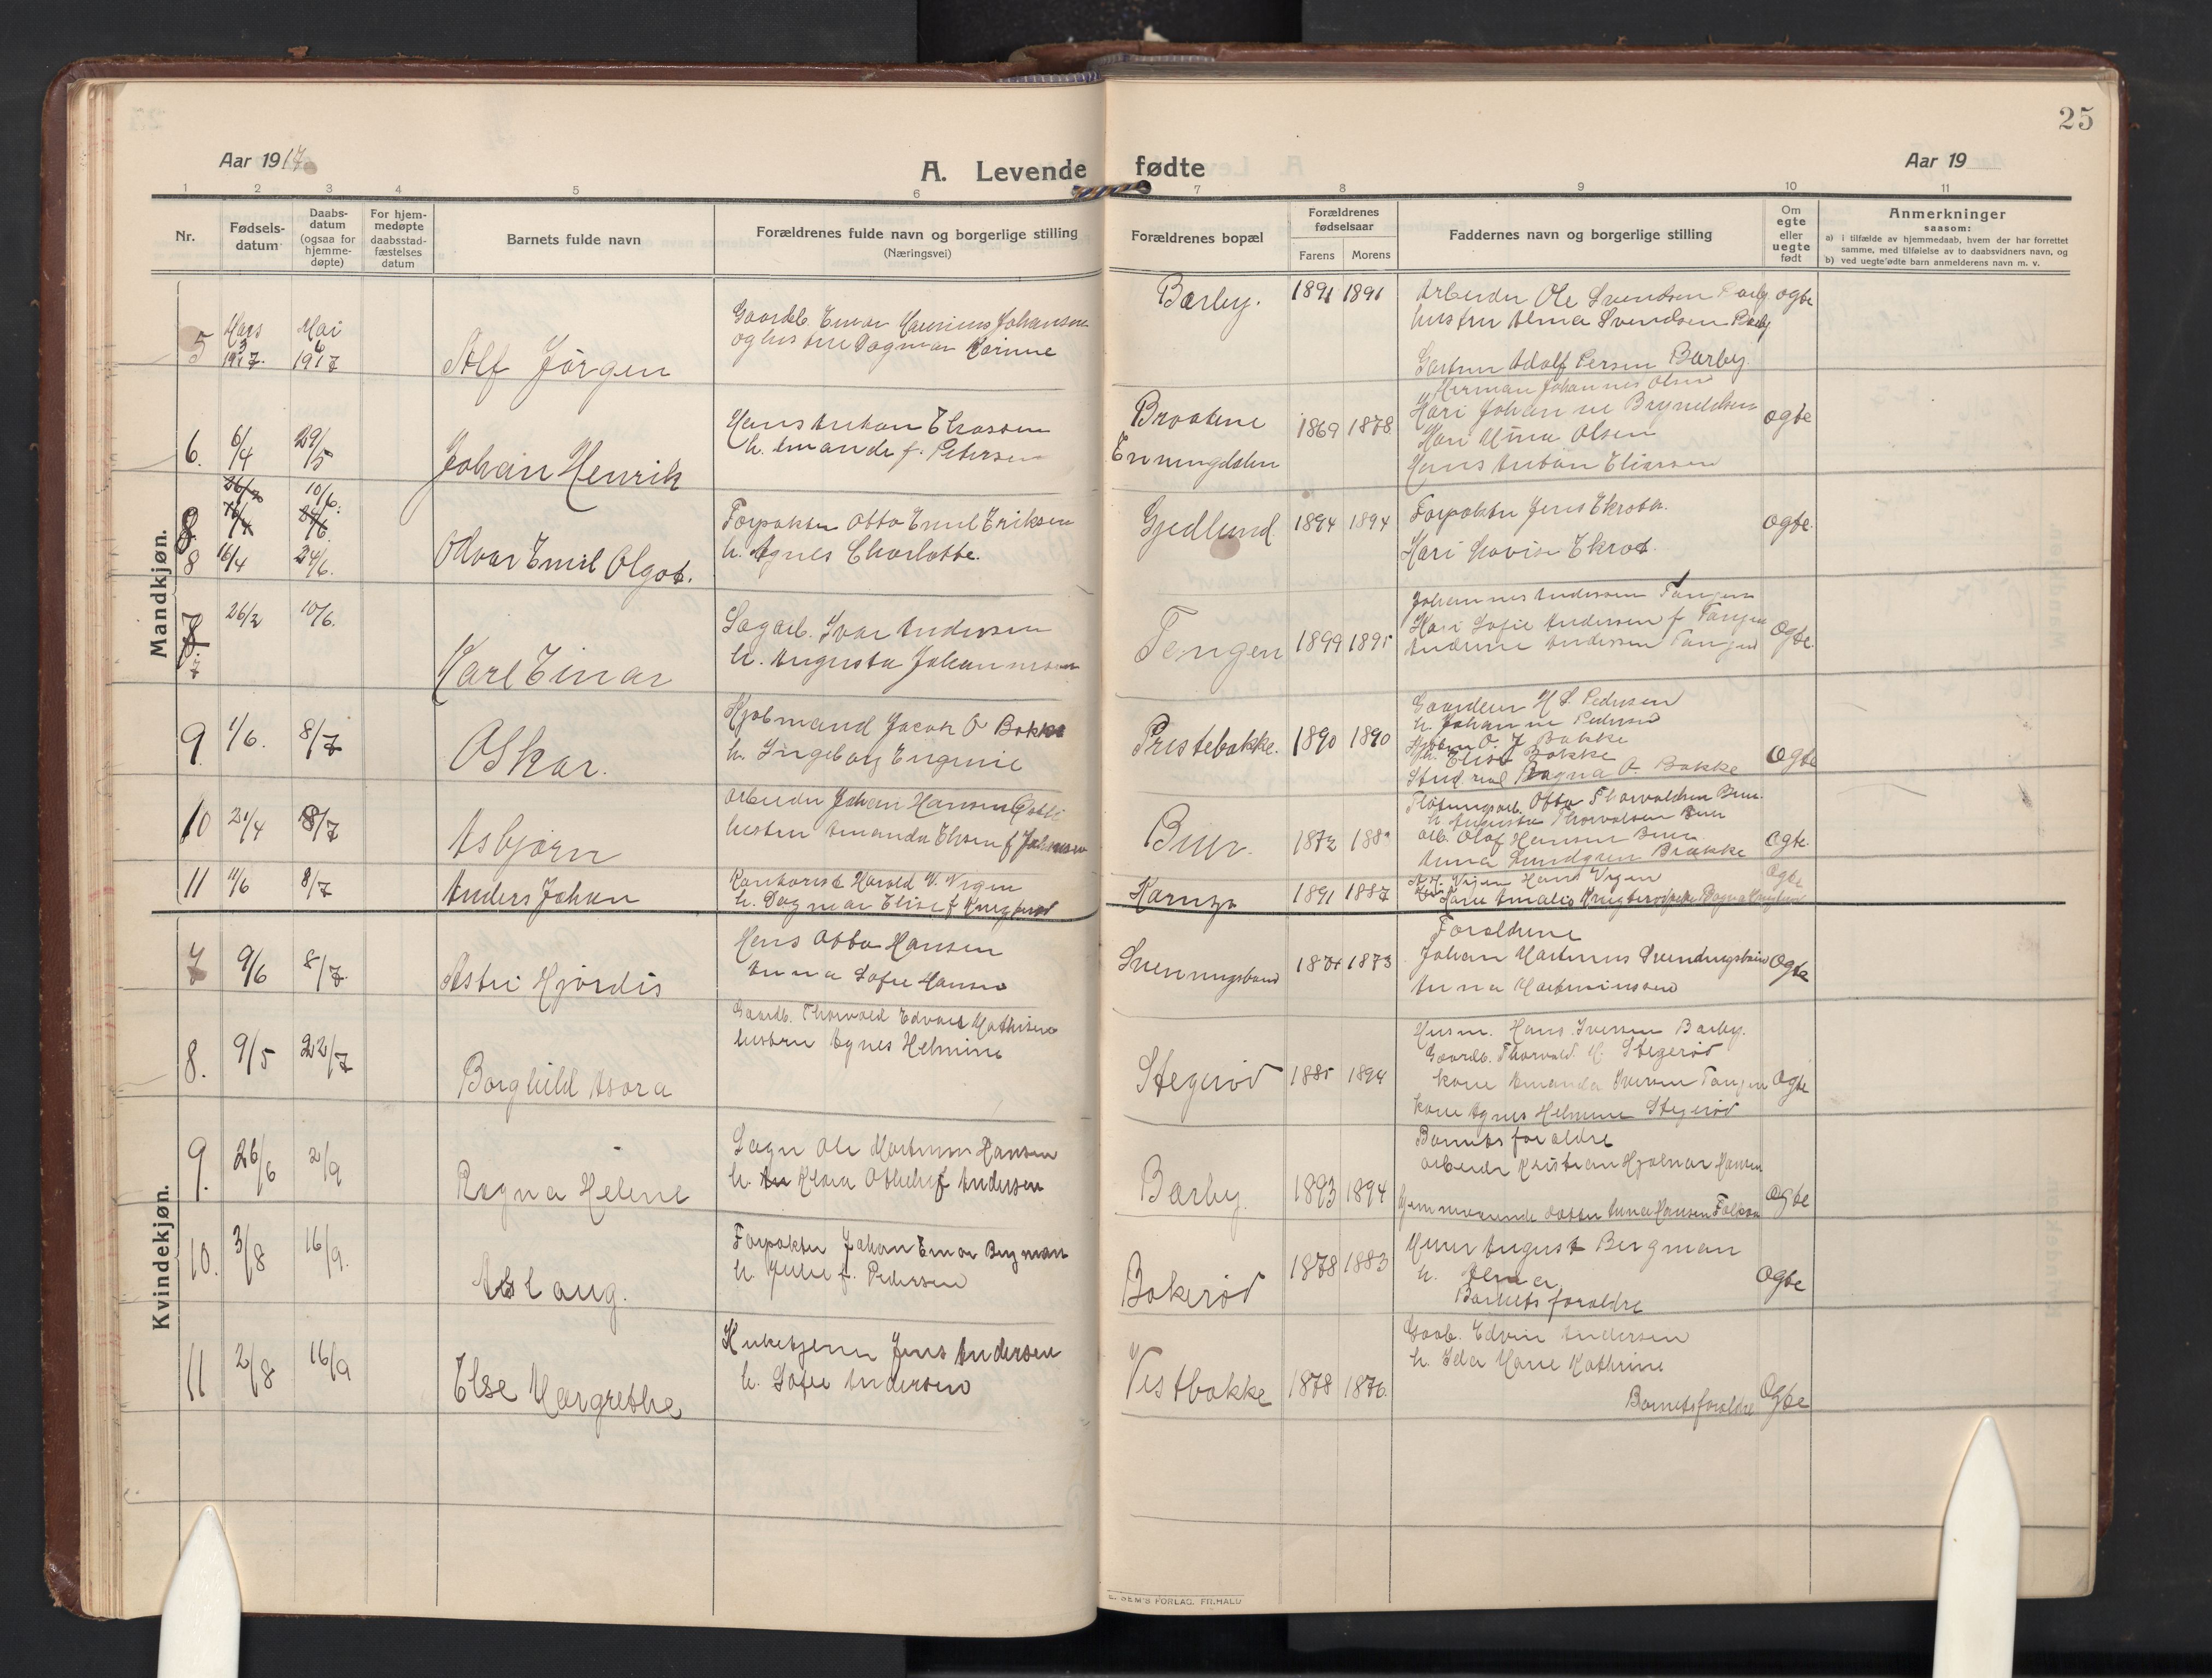 25
Aar 1917
A. Levende fødte
Aar 19
1 2 3 4 5 6 7 8 9 10 11
Nr.
Fødsels-
datum
Daabs-
datum
(ogsaa for
hjemme-
døpte)
For hjem-
medøpte
daabsstad-
fæstelses
datum
Barnets fulde navn
Forældrenes fulde navn og borgerlige stilling
(Næringsvei)
Forældrenes bopæl
Forældrenes
fødselsaar
Farens Morens
Faddernes navn og borgerlige stilling
Om
egte
eller
uegte
født
Anmerkninger
saasom:
a) i tilfælde av hjemmedaab, hvem der har forrettet
samme, med tilføielse av to daabsvidners navn, og
b) ved uegte fødte barn anmelderens navn m. v.
Mandkjøn.
5 Mars 3 1917. Mai 6 1917
Alf Jørgen
Gaardb. Einar Maurinus Johansen
og hustru Dagmar Karine
Bærby. 1891 1891
Arbeider Ole Svendsen Bærby
hustru Alma Svendsen Bærby
Gartner Adolf Persen Bærby.
egte
6. 6/4 29/5
Johan Henrik
Hans Anton Eliassen
h. Amanda f. Petersen
Braatene
Enningdalen
1869 1878
Herman Johannes Olsen
Mari Johanne Brynildsen
Mari Mina Olsen
Hans Anton Eliassen
egte
8 16/4 24/6.
Odvar Emil Olgot.
Forpakter Otto Emil Eriksen
h. Agnes Charlotte.
Gjedlund 1894 1894
Forpakter Jens Ekrota.
Mari Lovise Ekrot.
egte.
7 26/2 10/6.
Karl Einar
Sagarb. Ivar Andersen
h. Augusta Johannesen
Tangen 1899 1895
Johannes Andersen Tangen
Mari Sofie Andersen f Tangen
Andrine Andersen Tangen
egte.
9. 1/6. 8/7
Oskar.
Kjøbmand Jacob O Bakke
h. Ingeborg Eugenie
Pristebakke. 1890 1890
Gaardeier H S. Pedersen
h. Johanne Pedersen
Kjøbm O. J Bakke
h. Elise Bakke
Stud. real Ragna O. Bakke
egte
10 21/4 8/7
Asbjørn
Arbeider Johan Hansen
hustru Amanda Elisen f Johansen
Buer. 1872
Fløtningsarb. Otto Thorvaldsen Buer.
h. Augusta Thorvaldsen Buer
arb. Olaf Hansen Buer
Anna Lundgren Brække
egte
11 11/6 8/7
Anders Johan
Kontorist Harald V. Vigen
h. Dagmar Elise f Krugterød
Kornsjø 1891 1887
A. H. Vigen Hans Vigen
egte
Kvindekjøn.
7 9/6 8/7
Astri Hjørdis
Hans Otto Hansen
Anna Sofie Hansen
Svenningsbaun 1873
Forældrene
Johan Martinus
Anna Martiniussen
egte
8. 9/5 22/7
Borghild Asora
Gaardb. Thorvald Edvard Mathisen
hustru Agnes Helmine
Stegerød 1885 1894
Husm. Hans Iversen Bærby.
Gaardb. Thorvald M. Stegerød
kone Amanda Iversen Tangen
kone Agnes Helmine Stegerød
egte
9. 26/6 2/9
Ragna Helene
Sagm Ole Martinius Hansen
h. Klara Othelie f Andersen
Bærby. 1893 1894
Barnets forældre
arbeider Kristian Hjalmar Hansen
hjemmeværende datter Anna Hansen
egte
10. 3/8 16/9.
Aslaug.
Forpakter Johan Einar Bergman
h. Julie f. Pedersen
Bakerød 1878 1883
Murer August Bergman
h. Alma
Barnets forældre
egte
11 2/8 16/9
Else Margrethe
Jens Andersen
h. Sofie Andersen
Vestbakke 1878 1876.
Gaab. Edvin Andersen
h. Ida Marie Kathrine
Barnets forældre
egte
E. SEM'S FORLAG. FR.HALD